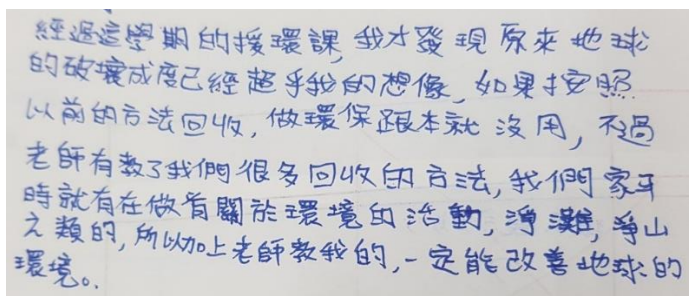 經過這學期的援環課,我才發現原來地球
的破壞成度已經超乎我的想像,如果按照
以前的方法回收,做環保跟本就沒用,不過
老師有教了我們很多回收的方法,我們家平
時就有在做有關於環境的活動,淨灘,爭山
之類的,所以加上老師教我的,一定能改善地球的
環境。